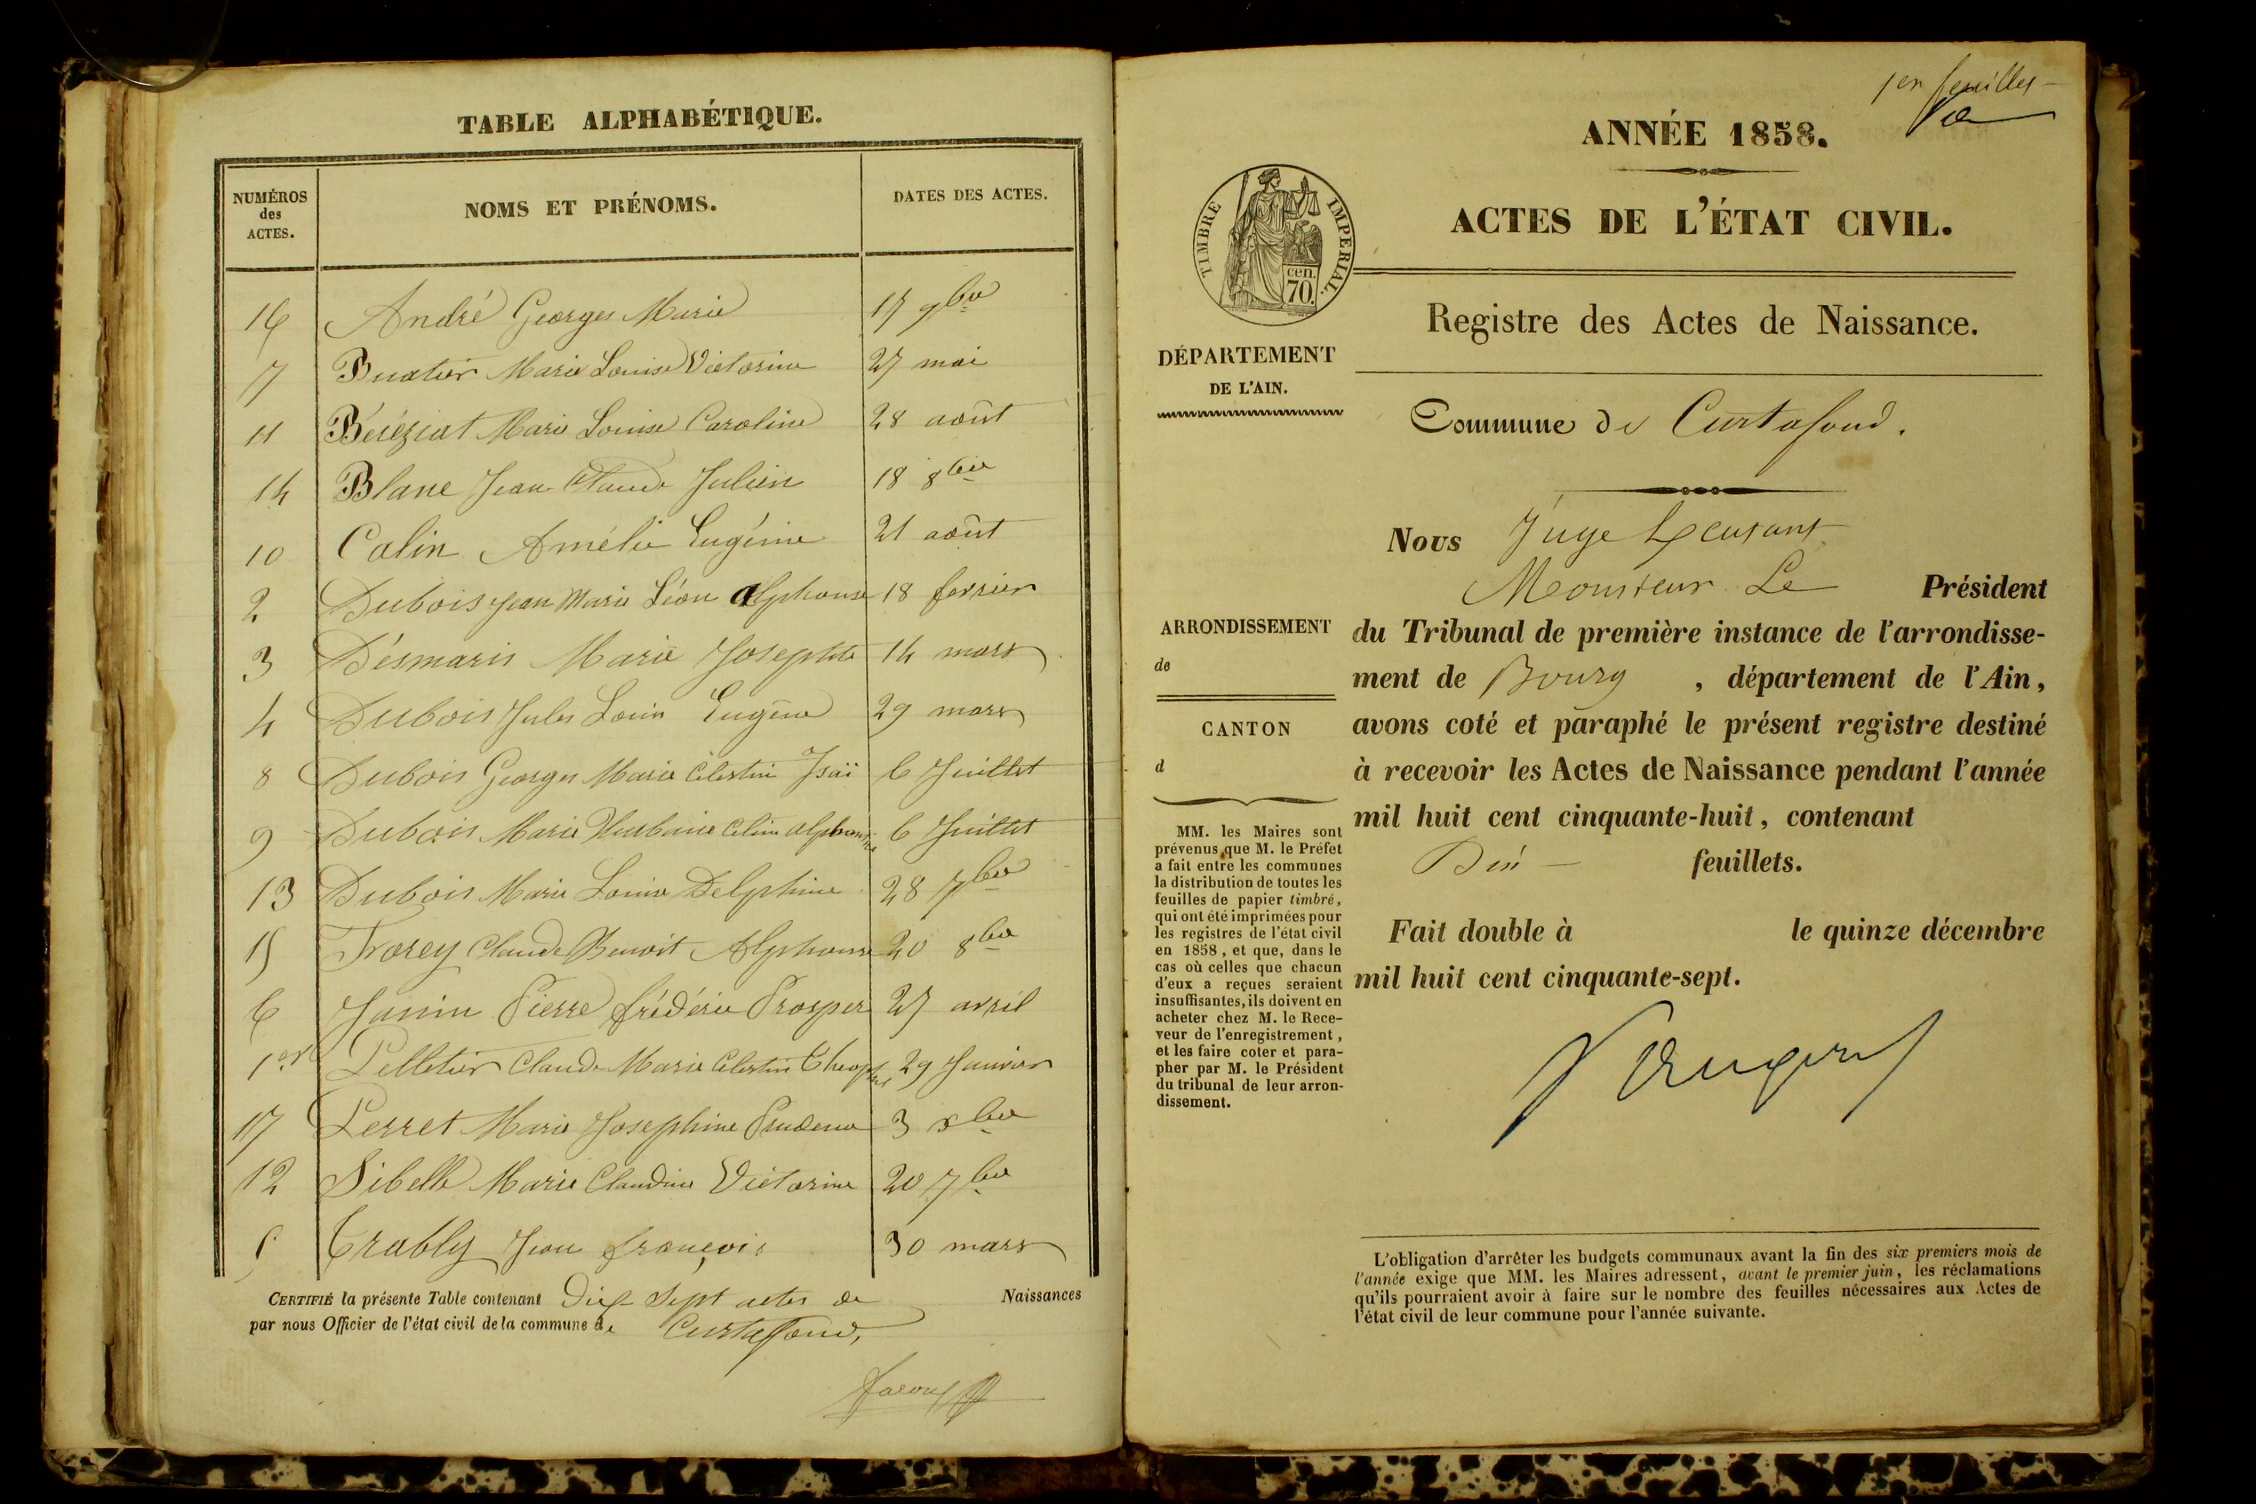 TABLE ALPHABÉTIQUE.
NUMÉROS des ACTES. NOMS ET PRÉNOMS. DATES DES ACTES.
16 André Georges Marie 17 9bre
7 Buatier Marie Louise Victorine 27 mai
11 Béréziat Marie Louise Caroline 28 août
14 Blanc Jean Claude Julien 18 8bre
10 Calin Amélie Eugénie 21 août
2 Dubois Jean Marie Léon alphonse 18 fevrier
3 Désmaris Marie Josephte 14 mars
4 Dubois Jules Louis Eugène 29 mars
8 Dubois Georges Marie Célestin Isaï 6 Juillet
9 Dubois Marie Urbaine Céline alphonsine 6 Juillet
13 Dubois Marie Louise Delphine 28 7bre
15 Forey Claude Benoit Alphonse 20 8bre
6 Janin Pierre frédéric Prosper 27 avril
1er Pelletier Claude Marie Célestin 29 Janvier
17 Perret Marie Josephine Prudence 3 xbre
12 Sibelle Marie Claudine Victorine 20 7bre
5 Trably Jean françois 30 mars
CERTIFIÉ la présente Table contenant Dix Sept actes de Naissances
par nous Officier de l'état civil de la commune de Curtafond,
1er feuillet
ANNÉE 1858.
ACTES DE L'ÉTAT CIVIL.
TIMBRE IMPERIAL.
cen.
70.
Registre des Actes de Naissance.
DÉPARTEMENT
DE L'AIN.
Commune de Curtafond.
Nous Juge
Monsieur Le Président
du Tribunal de première instance de l'arrondisse-
ment de Bourg , département de l'Ain,
avons coté et paraphé le présent registre destiné
à recevoir les Actes de Naissance pendant l'année
mil huit cent cinquante-huit, contenant
feuillets.
Fait double à le quinze décembre
mil huit cent cinquante-sept.
ARRONDISSEMENT
de
CANTON
d
MM. les Maires sont
prévenus que M. le Préfet
a fait entre les communes
la distribution de toutes les
feuilles de papier timbré,
qui ont été imprimées pour
les registres de l'état civil
en 1858, et que, dans le
cas où celles que chacun
d'eux a reçues seraient
insuffisantes, ils doivent en
acheter chez M. le Rece-
veur de l'enregistrement,
et les faire coter et para-
pher par M. le Président
du tribunal de leur arron-
dissement.
L'obligation d'arrêter les budgets communaux avant la fin des six premiers mois de
l'année exige que MM. les Maires adressent, avant le premier juin, les réclamations
qu'ils pourraient avoir à faire sur le nombre des feuilles nécessaires aux Actes de
l'état civil de leur commune pour l'année suivante.